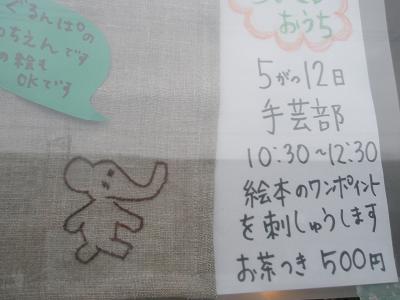 ぐるんぱの
ようちえんです
の絵も
OKです
おうち
5がつ12日
手芸部
10:30〜12:30
絵本のワンポイント
を刺しゅうします
お茶つき 500円